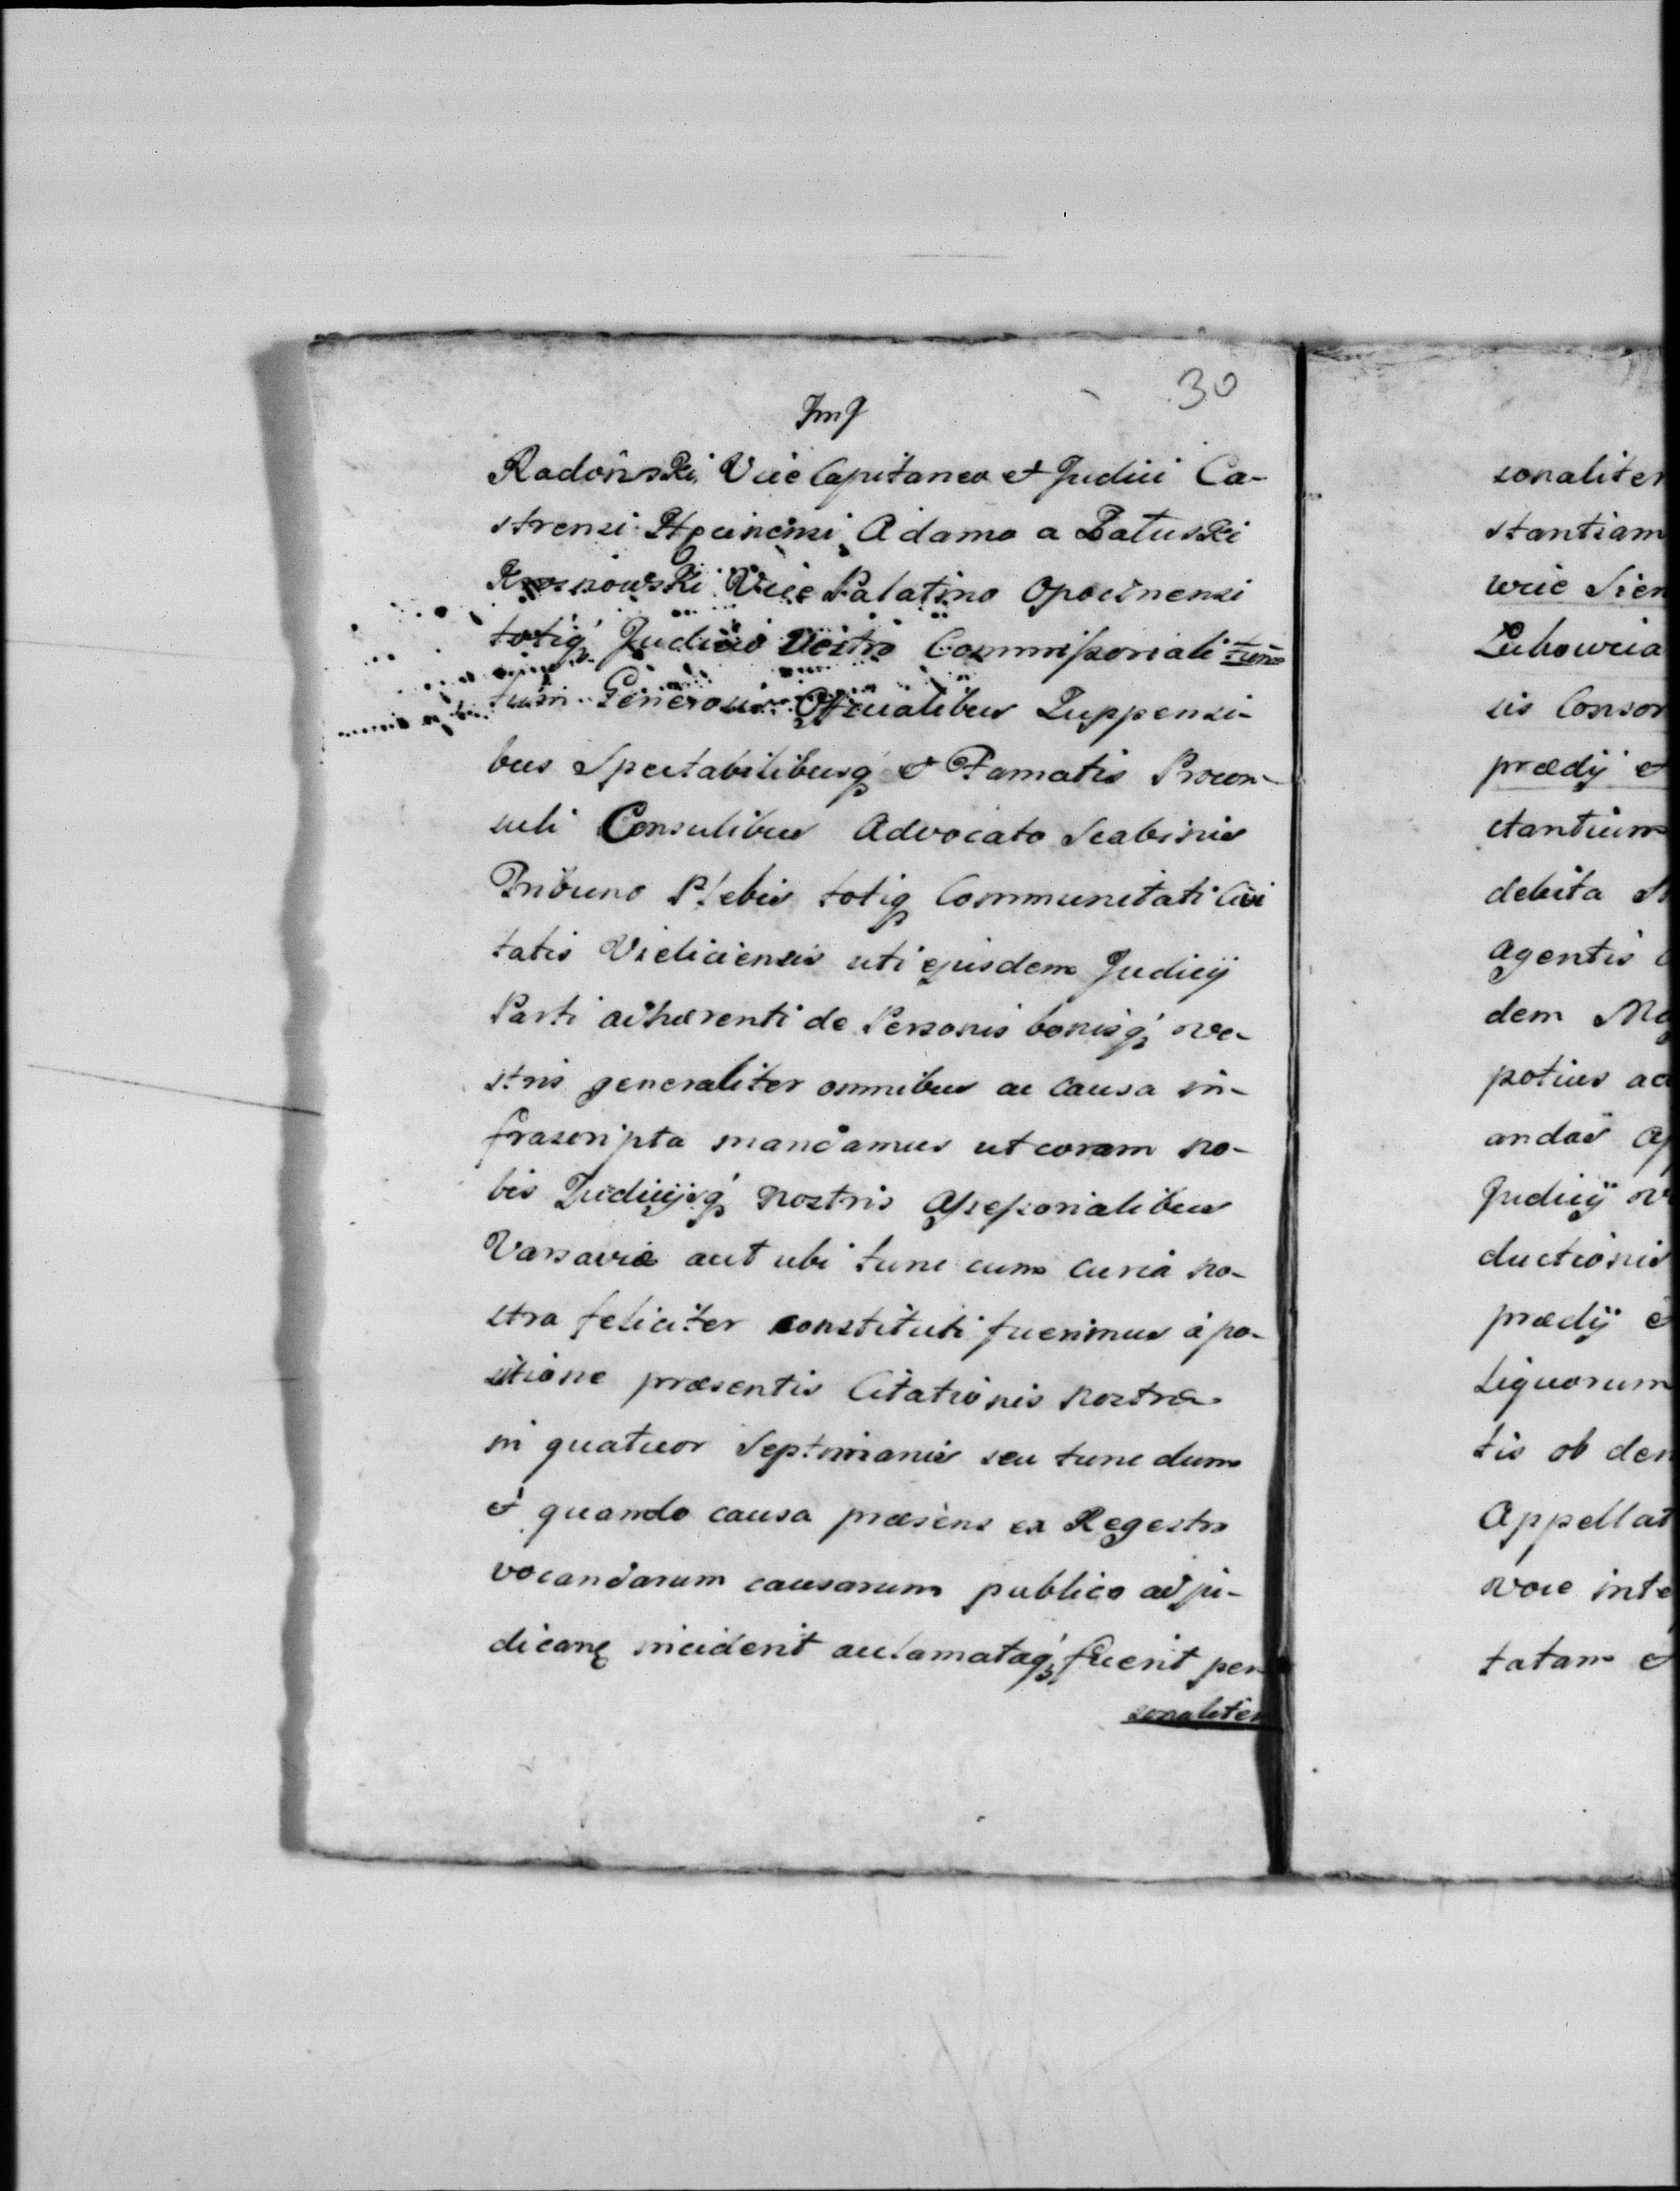 30
Radonski Vice Capitaneo et Judici Ca-
strensi Adamo a Załuski
Vice Palatino Opocinensi
totiq Judicio Vestro Commissoriali tum
tum Generosis Officialibus Zuppensi-
bus Spectabilibusq et Famatis Procon-
suli Consulibus Advocato Scabinis
Tribuno Plebis totiq Communitati Civi
tatis Vieliciensis uti ejusdem Judicij
Parti adhærenti de Personis bonisq ve-
stris generaliter omnibus ac causa in-
frascripta mandamus ut coram no-
bis Judicijsq nostris Assessorialibus
Varsaviæ aut ubi tunc cum curia no-
stra feliciter constituti fuerimus à po-
sitione præsentis Citationis nostræ
in quatuor Septimanis seu tunc dum
et quando causa præsens ex Regestro
vocandarum causarum publico ad ju-
dicanę inciderit acclamataq fuerit per-
sonaliter
sonaliter
stantiam
wic Sien
Luhowcia
sis Consor
prædij et
ctantium
debita
agentis
dem
potius
andas
Judicij
ductionis
prædij
Liquorum
tis ob
Appellat
voce inte
tatam et